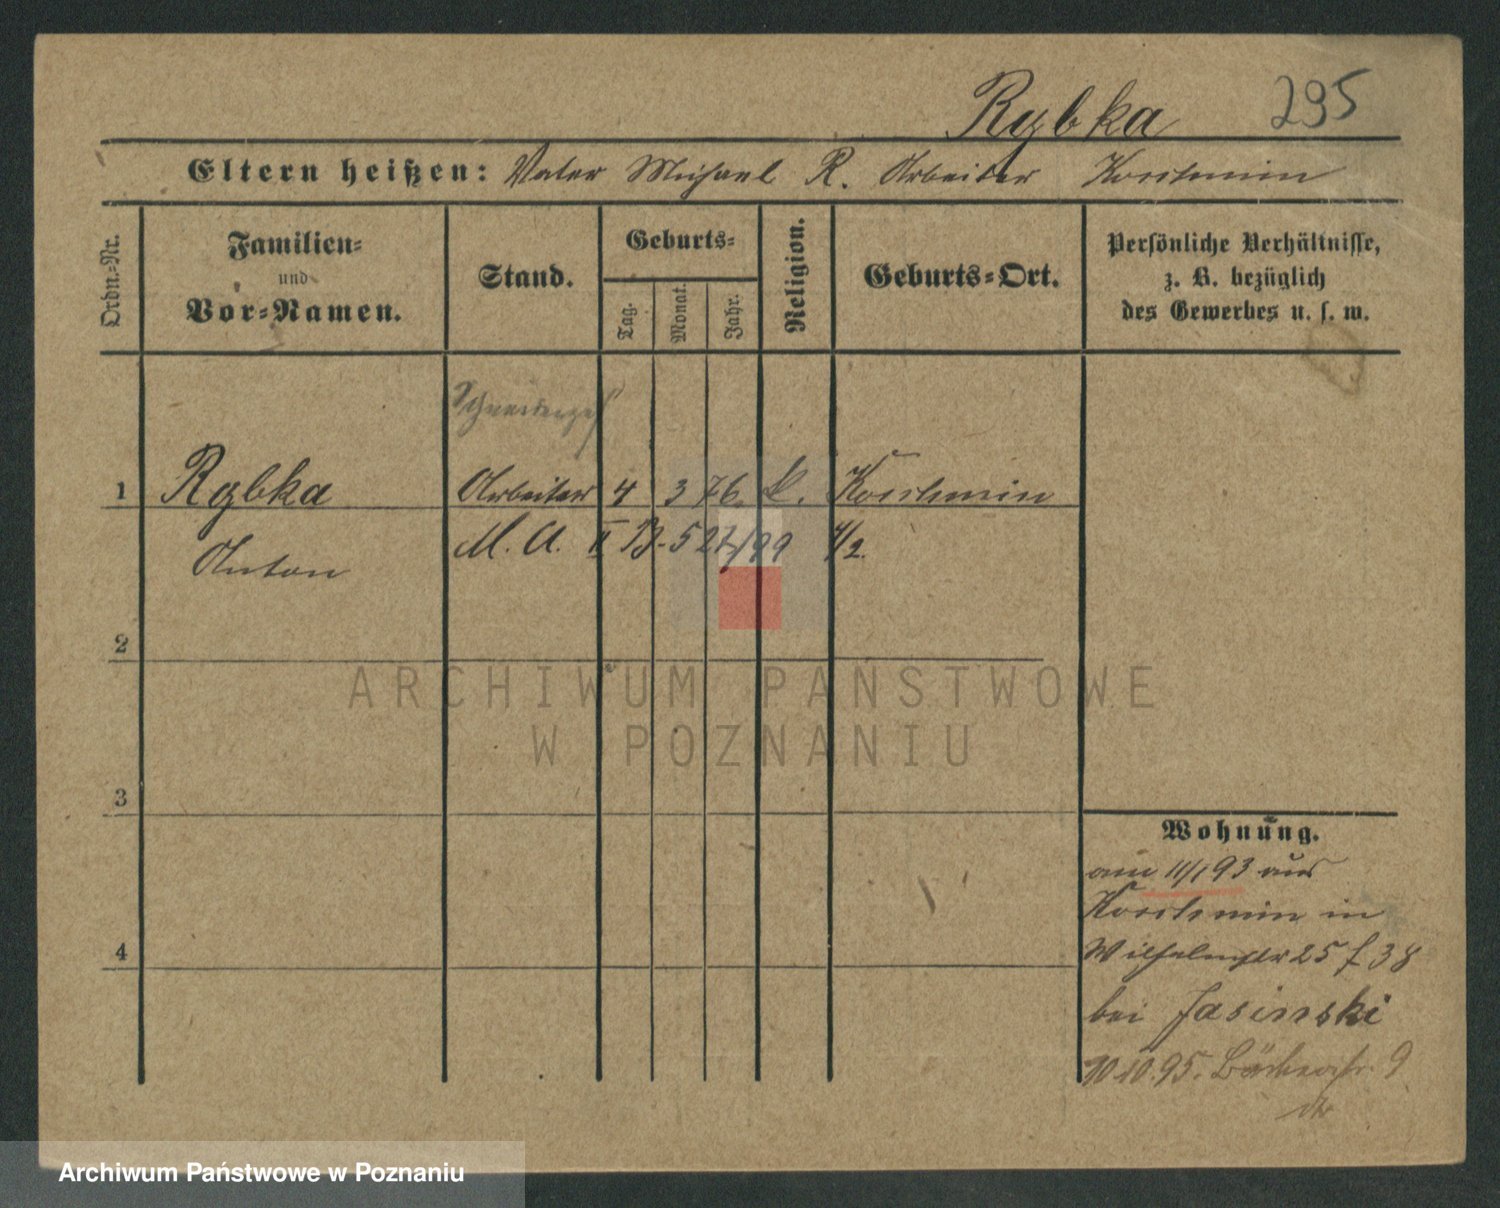 Rybka 295
Eltern heißen: Vater Michael R. Arbeiter Koschmin
Ordn.-Nr.
Familien-
und
Vor-Namen.
Stand.
Geburts-
Tag.
Monat.
Jahr.
Religion.
Geburts-Ort.
Persönliche Verhältnisse,
z. B. bezüglich
des Gewerbes u. s. w.
Schneiderges
1 Rybka Arbeiter 4 3 76. k. Koschmin
Anton M. A. II B. 527/99 4/2.
2
3
4
Wohnung.
am 11/1 93 aus
Koschmin in
Wilhelmstr 25 f 38
bei Jasinski
10.10.95. Bäckerstr. 9
ARCHIWUM PAŃSTWOWE
W POZNANIU
Archiwum Państwowe w Poznaniu